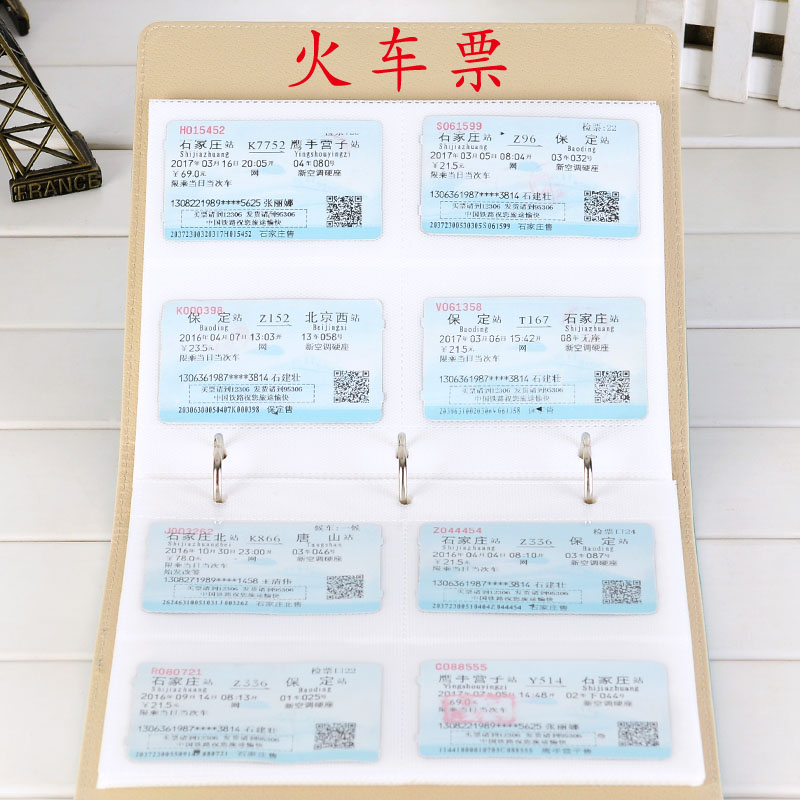 火车票
FRANCE
H015452
石家庄站 K7752 鹰手营子站
Shijiazhuang Yingshouyingzi
2017年03月16日 20:05开 04车080号
¥69.0元 网 新空调硬座
限乘当日当次车
1308221989****5625 张丽娜
买票请到12306 发货请到95306
中国铁路祝您旅途愉快
20372300320317H015452 石家庄售
S061599 检票:22
石家庄站 Z96 保定站
Shijiazhuang Baoding
2017年03月05日 08:04开 03车032号
¥21.5元 网 新空调硬座
限乘当日当次车
1306361987****3814 石建壮
买票请到12306 发货请到95306
中国铁路祝您旅途愉快
20372300530305S061599 石家庄售
K000398
保定站 Z152 北京西站
Baoding Beijingxi
2016年04月07日 13:03开 13车058号
¥23.5元 网 新空调硬座
限乘当日当次车
1306361987****3814 石建壮
买票请到12306 发货请到95306
中国铁路祝您旅途愉快
20306300050407K000398 保定售
V061358
保定站 T167 石家庄站
Baoding Shijiazhuang
2017年03月06日 15:42开 08车无座
¥21.5元 网 新空调硬座
限乘当日当次车
1306361987****3814 石建壮
买票请到12306 发货请到95306
中国铁路祝您旅途愉快
J003262 候车:一候
石家庄北站 K866 唐山站
Shijiazhuangbei Tangshan
2016年10月30日 23:00开 03车046号
¥78.0元 网 新空调硬座
限乘当日当次车
始发改签
1308271989****1458
买票请到12306 发货请到95306
中国铁路祝您旅途愉快
26246310051031J003262 石家庄北售
Z044454 检票口24
石家庄站 Z336 保定站
Shijiazhuang Baoding
2016年04月04日 08:10开 03车087号
¥21.5元 网 新空调硬座
限乘当日当次车
1306361987****3814 石建壮
买票请到12306 发货请到95306
中国铁路祝您旅途愉快
20372300510404Z044454 石家庄售
R080721 检票口22
石家庄站 Z336 保定站
Shijiazhuang Baoding
2016年09月14日 08:13开 01车025号
¥21.5元 网 新空调硬座
限乘当日当次车
1306361987****3814 石建壮
买票请到12306 发货请到95306
中国铁路祝您旅途愉快
石家庄售
C088555
鹰手营子站 Y514 石家庄站
Yingshouyingzi Shijiazhuang
2017年07月05日 14:48开 02车下044号
¥69.0元 网 新空调硬座
限乘当日当次车
1308221989****5625 张丽娜
买票请到12306 发货请到95306
中国铁路祝您旅途愉快
鹰手营子售